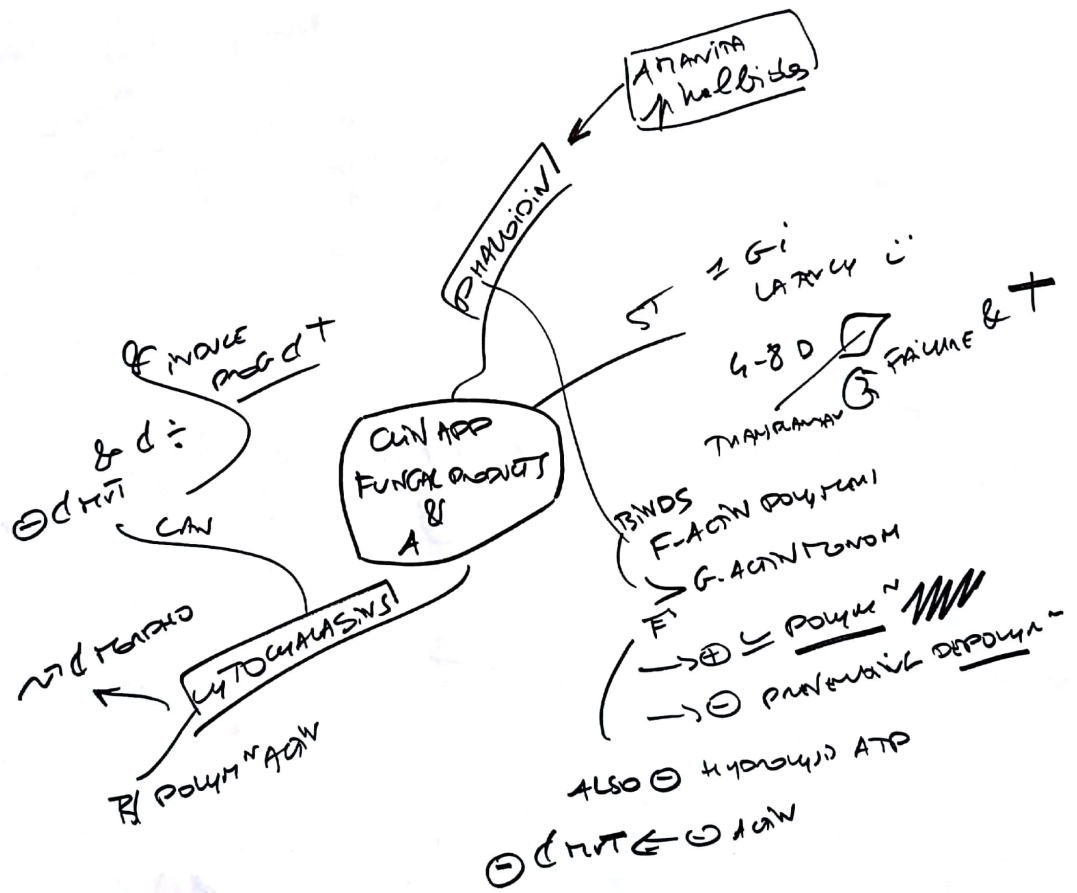 AMANITA
phalloides
PHALLOIDIN
ST
1 Gi
LATENCY
4-8 D
FAILURE & †
& INDUCE
PROG d †
& d ÷
⊖ d MVT
CAN
CLIN APP
FUNGAL PRODUCTS
&
A
BINDS
F-ACTIN POLYMERI
> G. ACTIN MONOM
→ ⊕ POLYM^N
→ ⊖ PREVENTING DEPOLYM^N
ALSO ⊖ HYDROLYSIS ATP
⊖ d MVT ← ⊖ ACTIN
CYTOCHALASINS
d MORPHO
POLYM^N ACTIN